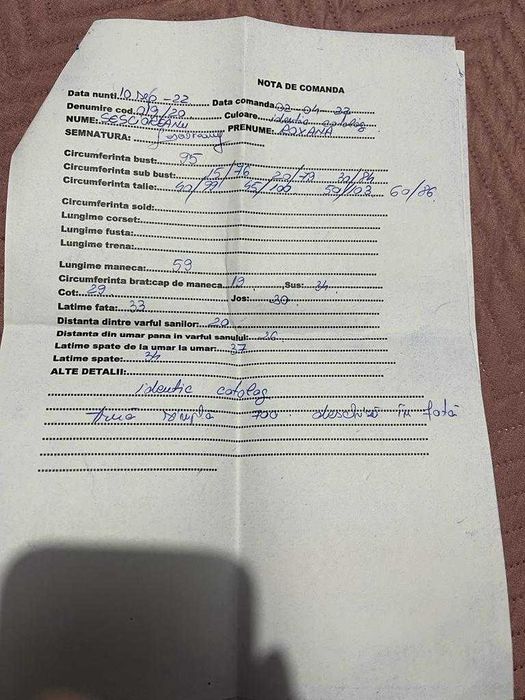 NOTA DE COMANDA
Data nunti: 10 sep - 22 Data comanda 02-04-22
Denumire cod 019/20 Culoare identic catalog
NUME: SESCIOREANU PRENUME: ROXANA
SEMNATURA:
Circumferinta bust: 95
Circumferinta sub bust: 15/76 20/79 30/84
Circumferinta talie: 40/99 45/100 50/103 60/86
Circumferinta sold:
Lungime corset:
Lungime fusta:
Lungime trena:
Lungime maneca: 59
Circumferinta brat:cap de maneca 19 ,Sus: 34
Cot: 29 Jos: 30
Latime fata: 33
Distanta dintre varful sanilor: 20
Distanta din umar pana in varful sanului: 26
Latime spate de la umar la umar: 37
Latime spate: 34
ALTE DETALII:
identic catalog
simpla 700 deschisă în fată